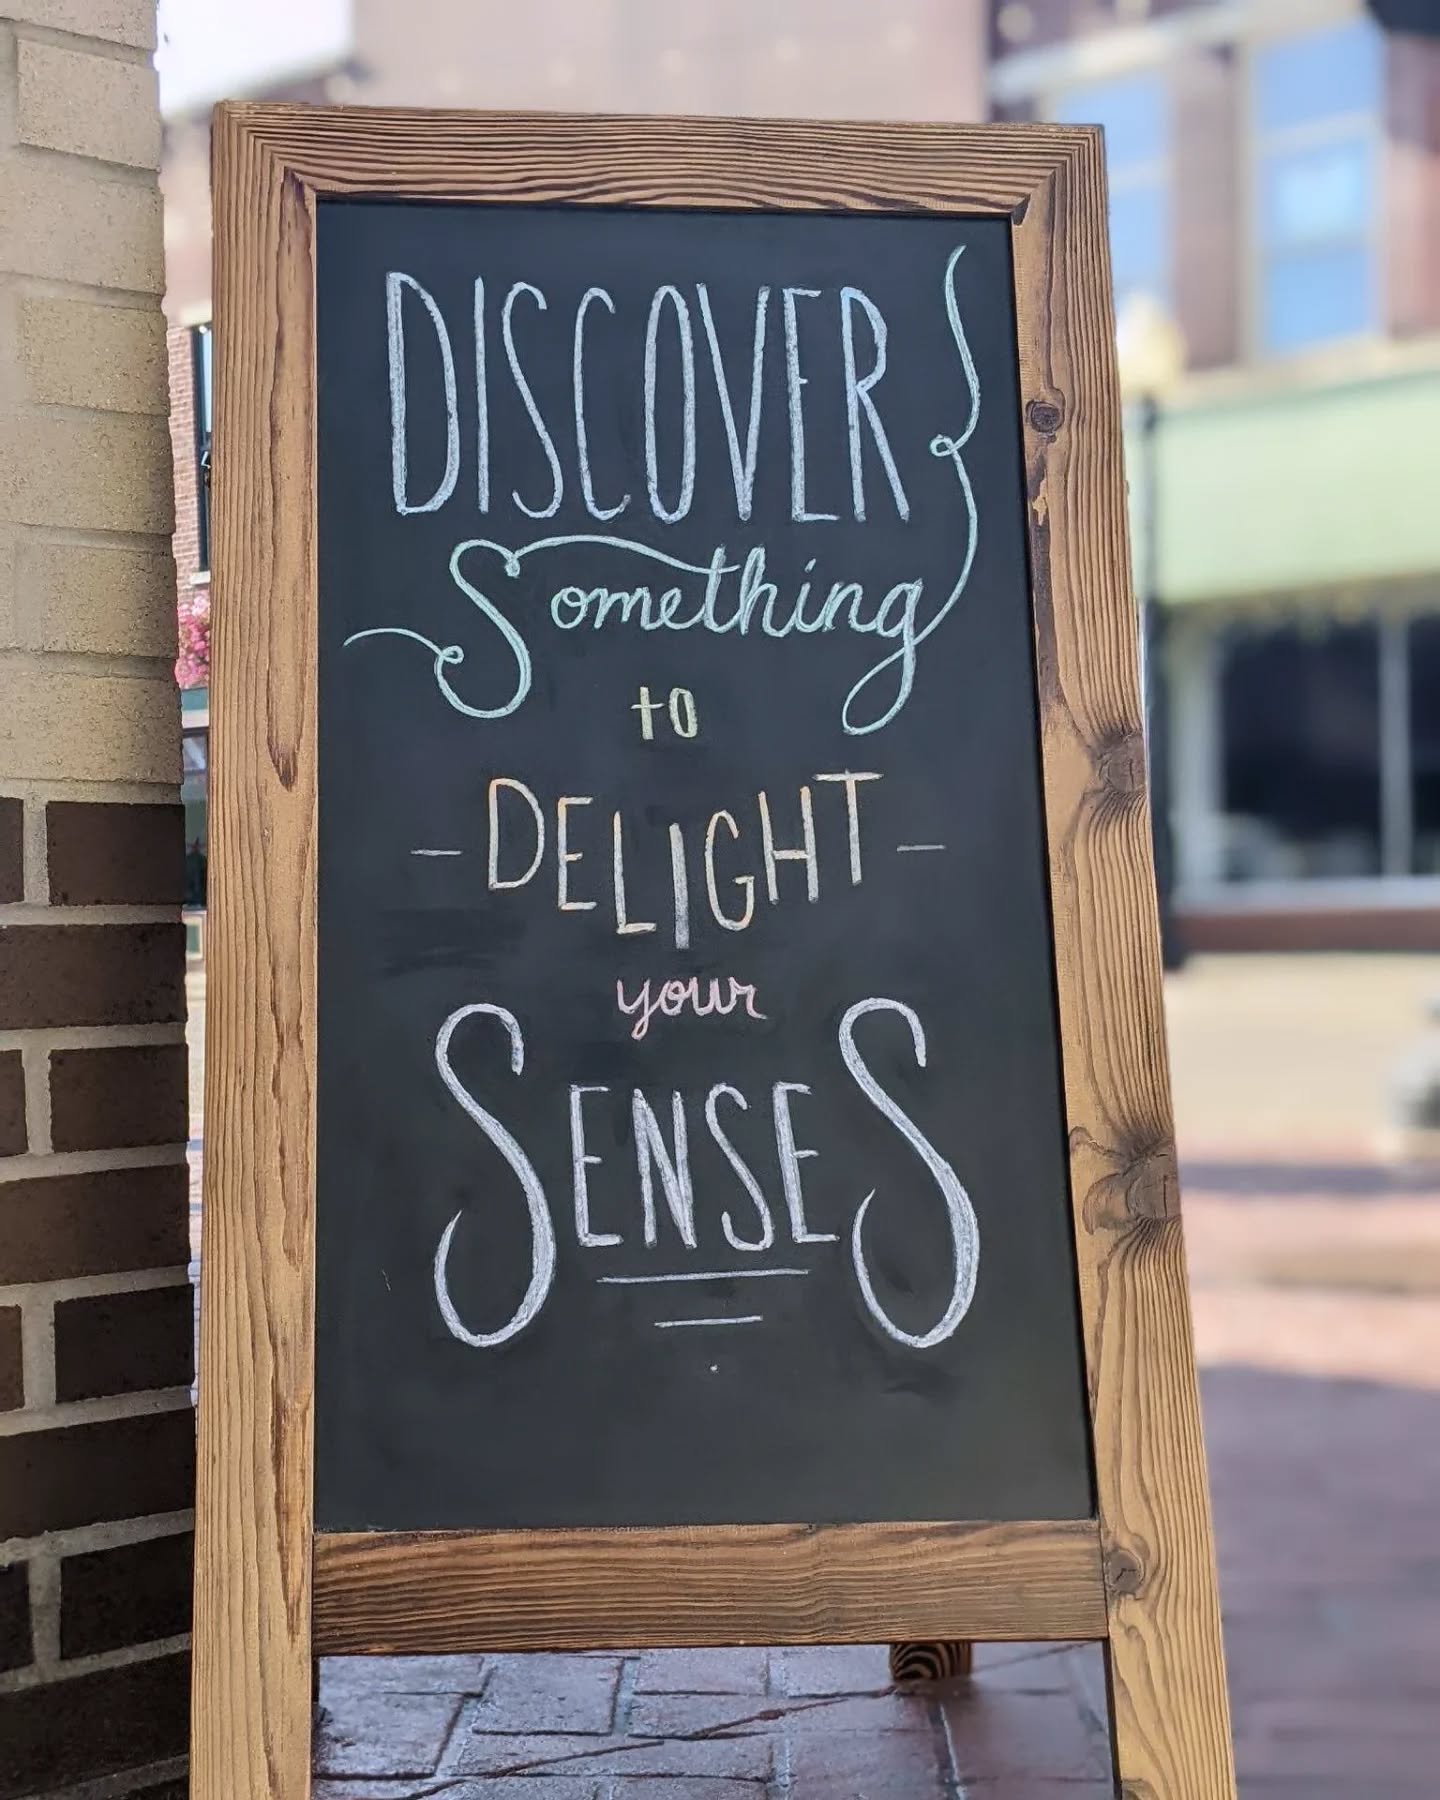 DISCOVER
Something
to
- DELIGHT -
your
SENSES